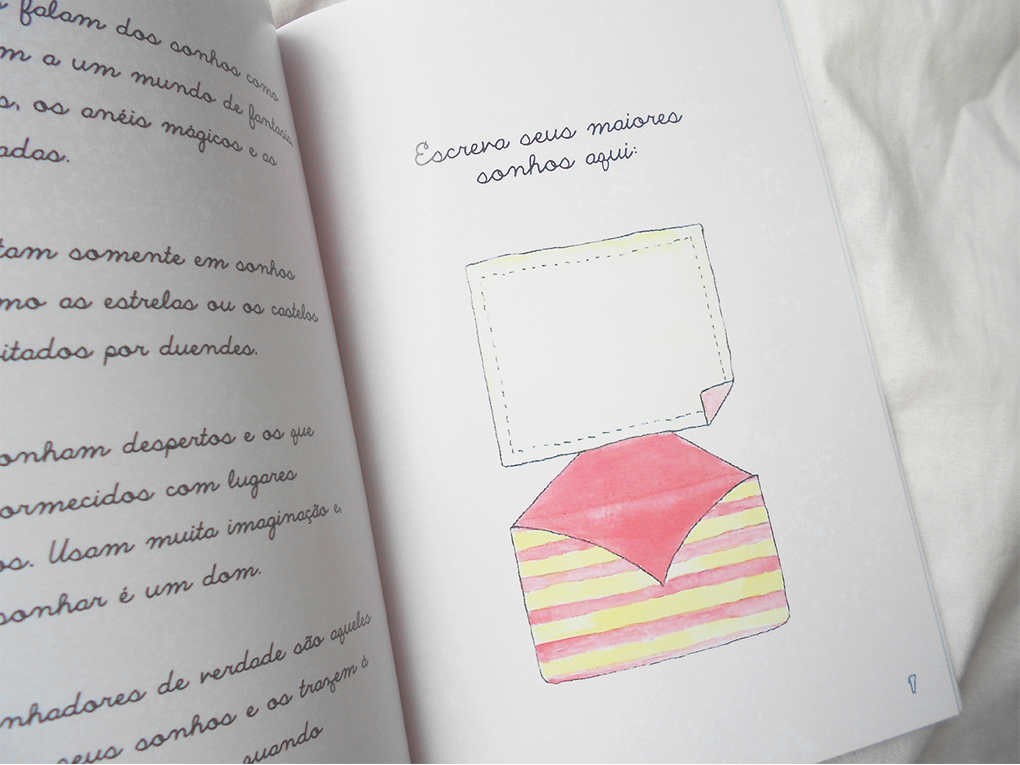 falam dos sonhos como
m a um mundo de fantasia
s, os anéis mágicos e as
adas.
tam somente em sonhos
mo as estrelas ou os castelos
itados por duendes.
onham despertos e os que
ormecidos com lugares
os. Usam muita imaginação e,
sonhar é um dom.
nhadores de verdade são aqueles
seus sonhos e os trazem à
quando
Escreva seus maiores
sonhos aqui:
17